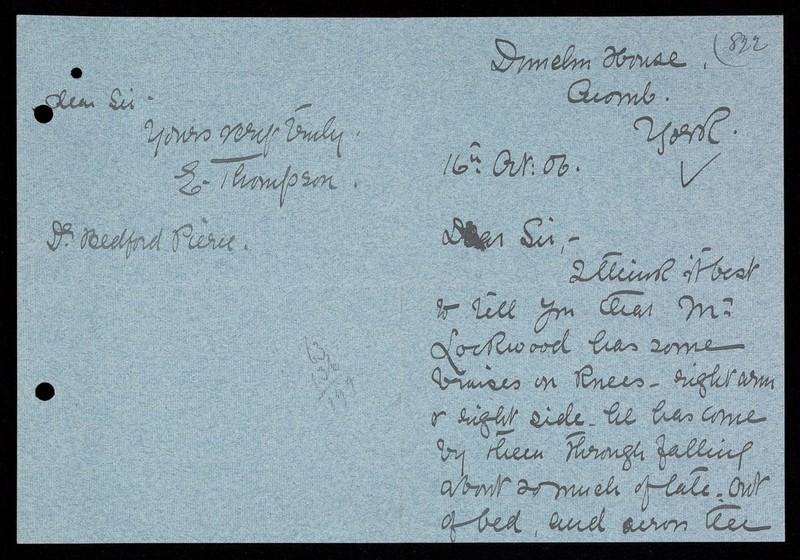 (832
Dunelm House.
Acomb.
York.
16th Oct: 06.
Dear Sir,-
I think it best
to tell you that Mr
Lockwood has some
bruises on knees - right arm
& right side - he has come
by them through falling
about so much of late - out
of bed, and across the
dear Sir -
Yours very truly.
E. Thompson.
Dr Bedford Pierce.
63
136